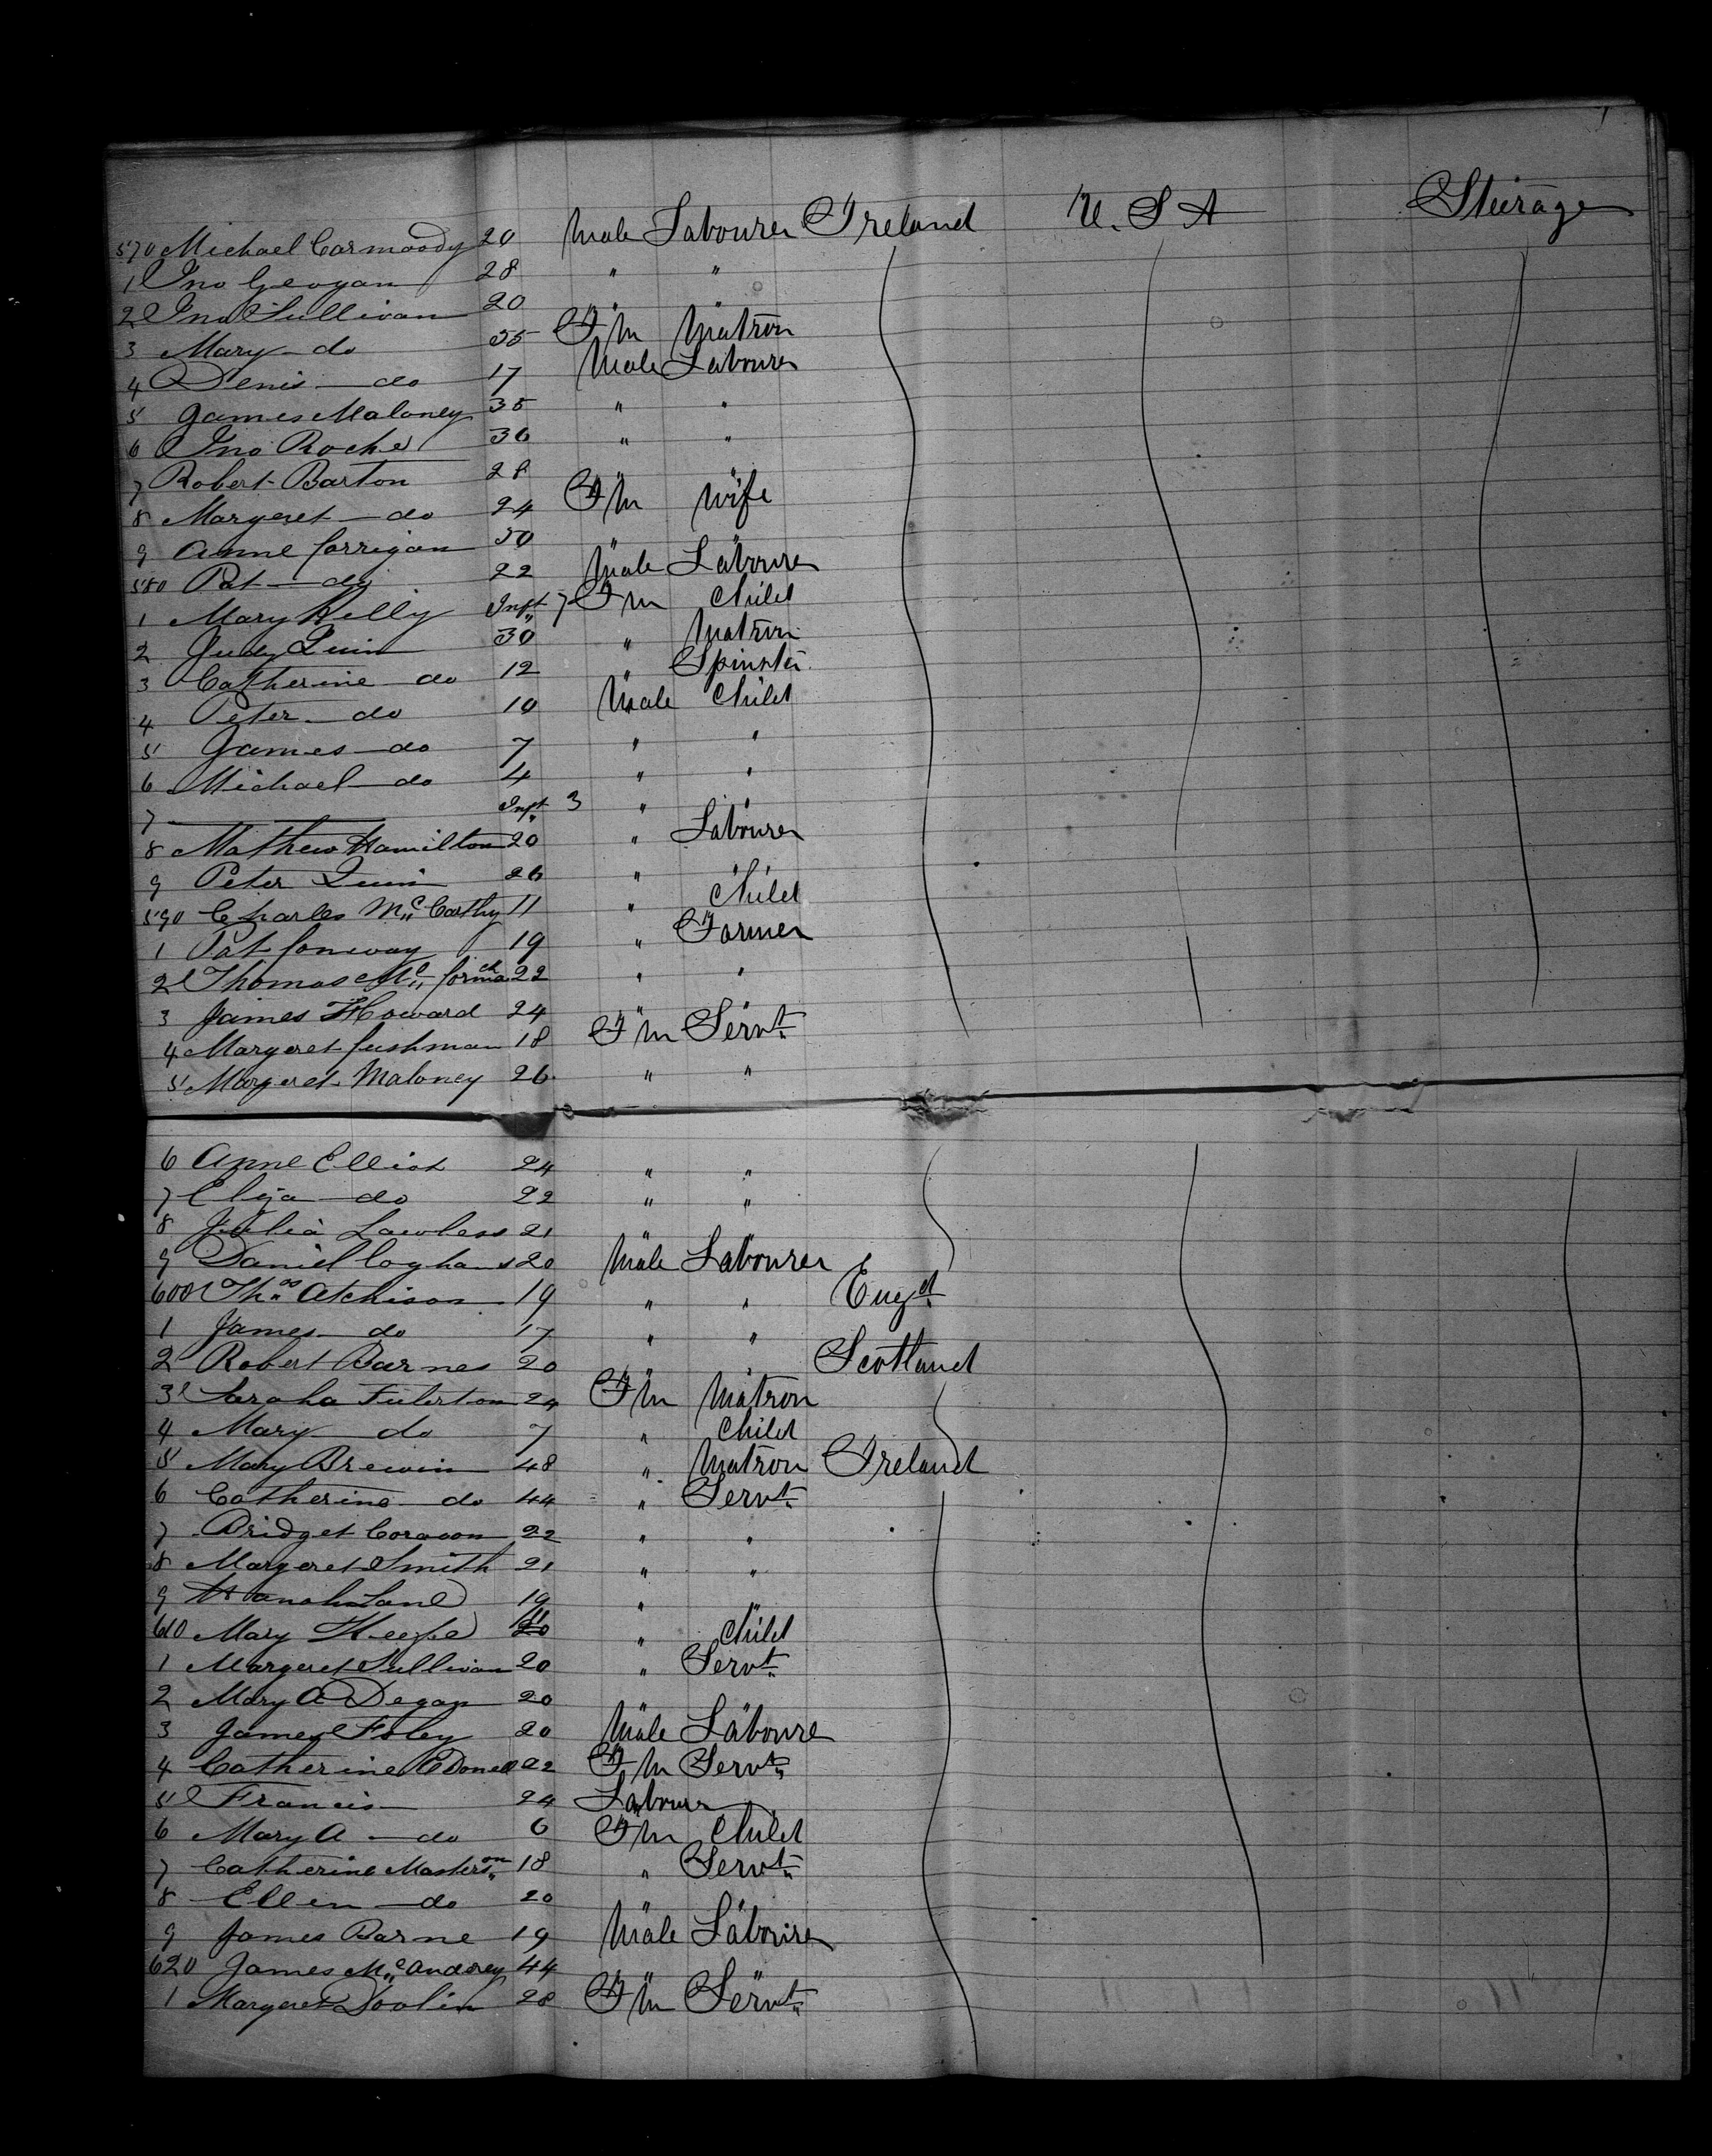 570 Michael Carmoody 20 Male Labourer Ireland U. S A Steerage
1 Jno Geogan 28 " "
2 Jno Sullivan 20 " "
3 Mary do 55 Fm Matron
4 Denis do 17 Male Labourer
5 James Maloney 35 " "
6 Jno Roche 36 " "
7 Robert Barton 28 " "
8 Margeret do 24 Fm Wife
9 Anne Corrigan 50 "
580 Pat do 22 Male Labourer
1 Mary Kelly Inft 7 Fm Child
2 Judy Quin 30 " Matron
3 Catherine do 12 " Spinster
4 Peter do 10 Male Child
5 James do 7 " "
6 Michael do 4 " "
7 Inft 3 " "
8 Mathew Hamilton 20 " Labourer
9 Peter Quin 26 " "
590 Charles Mc Carthy 11 " Child
1 Pat Conway 19 " Farmer
2 Thomas Mc 22 " "
3 James Howard 24 " "
4 Margeret Cushman 18 Fm Servt
5 Margeret Maloney 26 " "
6 Anne Elliot 24 " "
7 Eliza do 22 " "
8 Julia Lawless 21 " "
9 Daniel 20 Male Labourer
600 Thos Atchison 19 " " Engd
1 James do 17 " "
2 Robert Barnes 20 " " Scotland
3 Fulerton 24 Fm Matron
4 Mary do 7 " Child
5 Mary Brewin 48 " Matron Ireland
6 Catherine do 44 " Servt
7 Bridget 22 " "
8 Margeret Smith 21 " "
9 Hanah Lane 19 " "
610 Mary Keefe 11 " Child
1 Margeret Sullivan 20 " Servt
2 Mary A Degan 20 " "
3 James Foley 20 Male Laboure
4 Catherine 22 Fm Servt
5 Francis 24 Labourer
6 Mary A do 6 Fm Child
7 Catherine Masterson 18 " Servt
8 Ellen do 20 " "
9 James Barne 19 Male Labourer
620 James Mc Andrey 44 " "
1 Margeret Doolin 28 Fm Servt